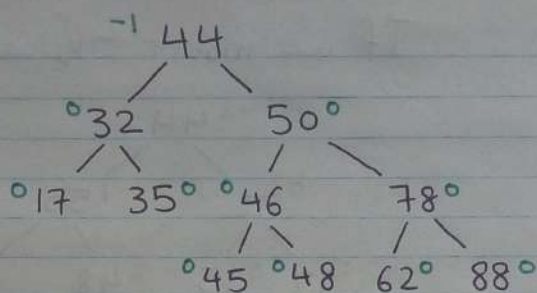 -1 44
0 32 50 0
0 17 35 0 0 46 78 0
0 45 0 48 62 0 88 0